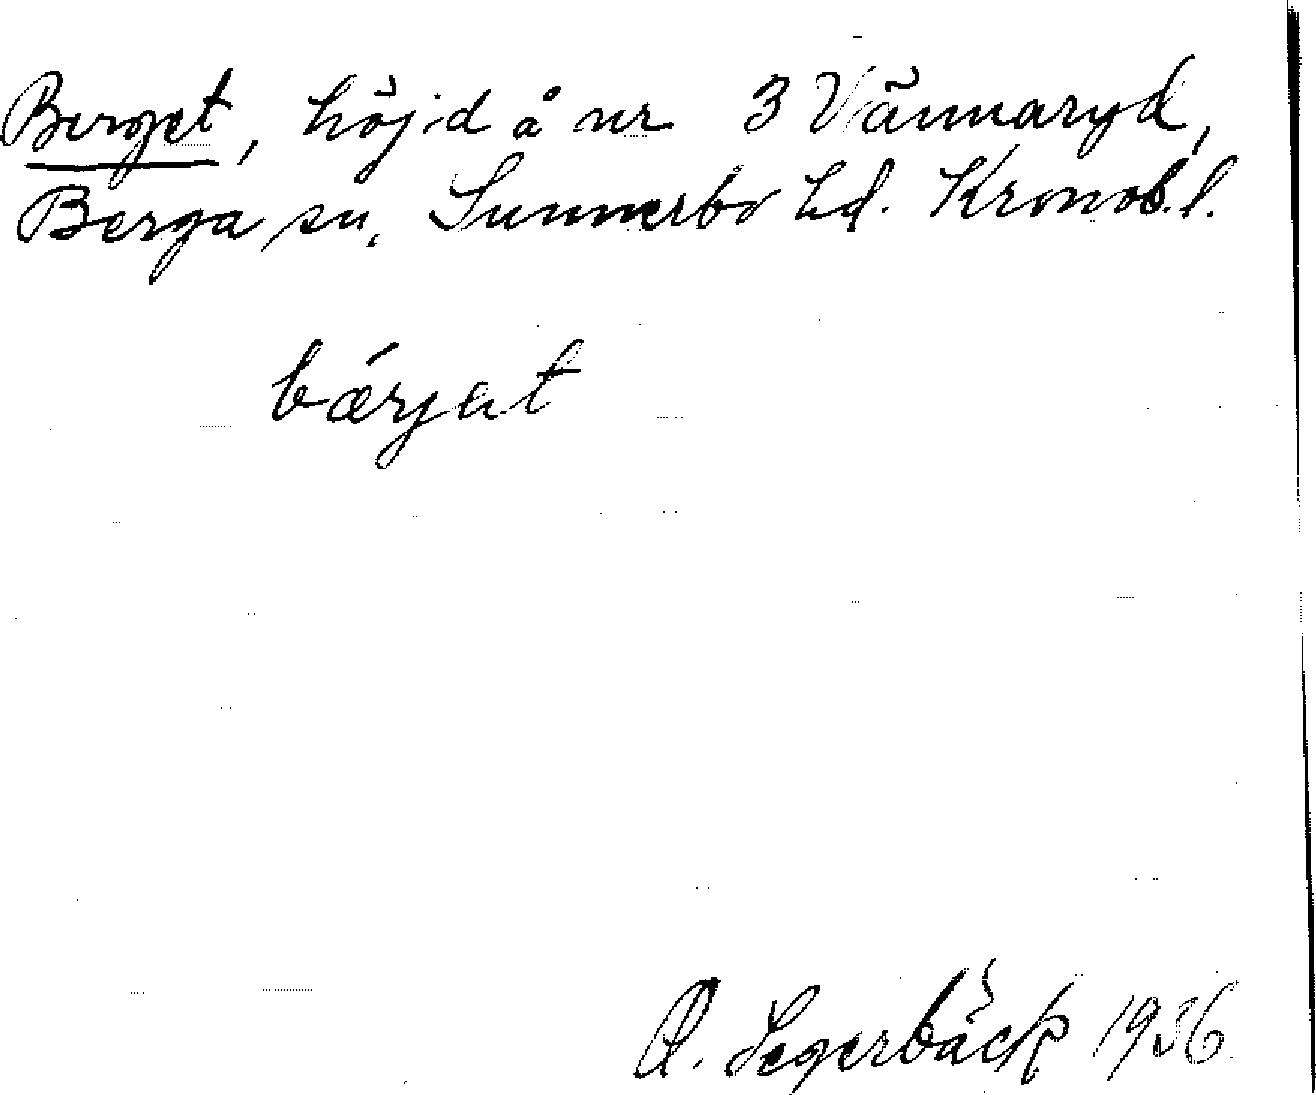 Berget, höjd å nr 3 Vännaryd,
Berga sn, Sunnerbo hd. Kronob.l.
bǽrjat
A. Segerbäck 1936